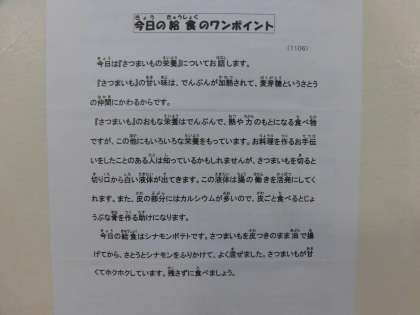 今日の給食のワンポイント
(1106)
今日は『さつまいもの栄養』についてお話します。
『さつまいも』の甘い味は、でんぷんが加熱されて、麦芽糖というさとう
の仲間にかわるからです。
『さつまいも』のおもな栄養はでんぷんで、熱や力のもとになる食べ物
ですが、この他にもいろいろな栄養をもっています。お料理を作るお手伝
いをしたことのある人は知っているかもしれませんが、さつまいもを切ると
切り口から白い液体が出てきます。この液体は腸の働きを活発にしてく
れます。また、皮の部分にはカルシウムが多いので、皮ごと食べるとじょ
うぶな骨を作る助けになります。
今日の給食はシナモンポテトです。さつまいもを皮つきのまま油で揚
げてから、さとうとシナモンをふりかけて、よく混ぜました。さつまいもが甘
くてホクホクしています。残さずに食べましょう。